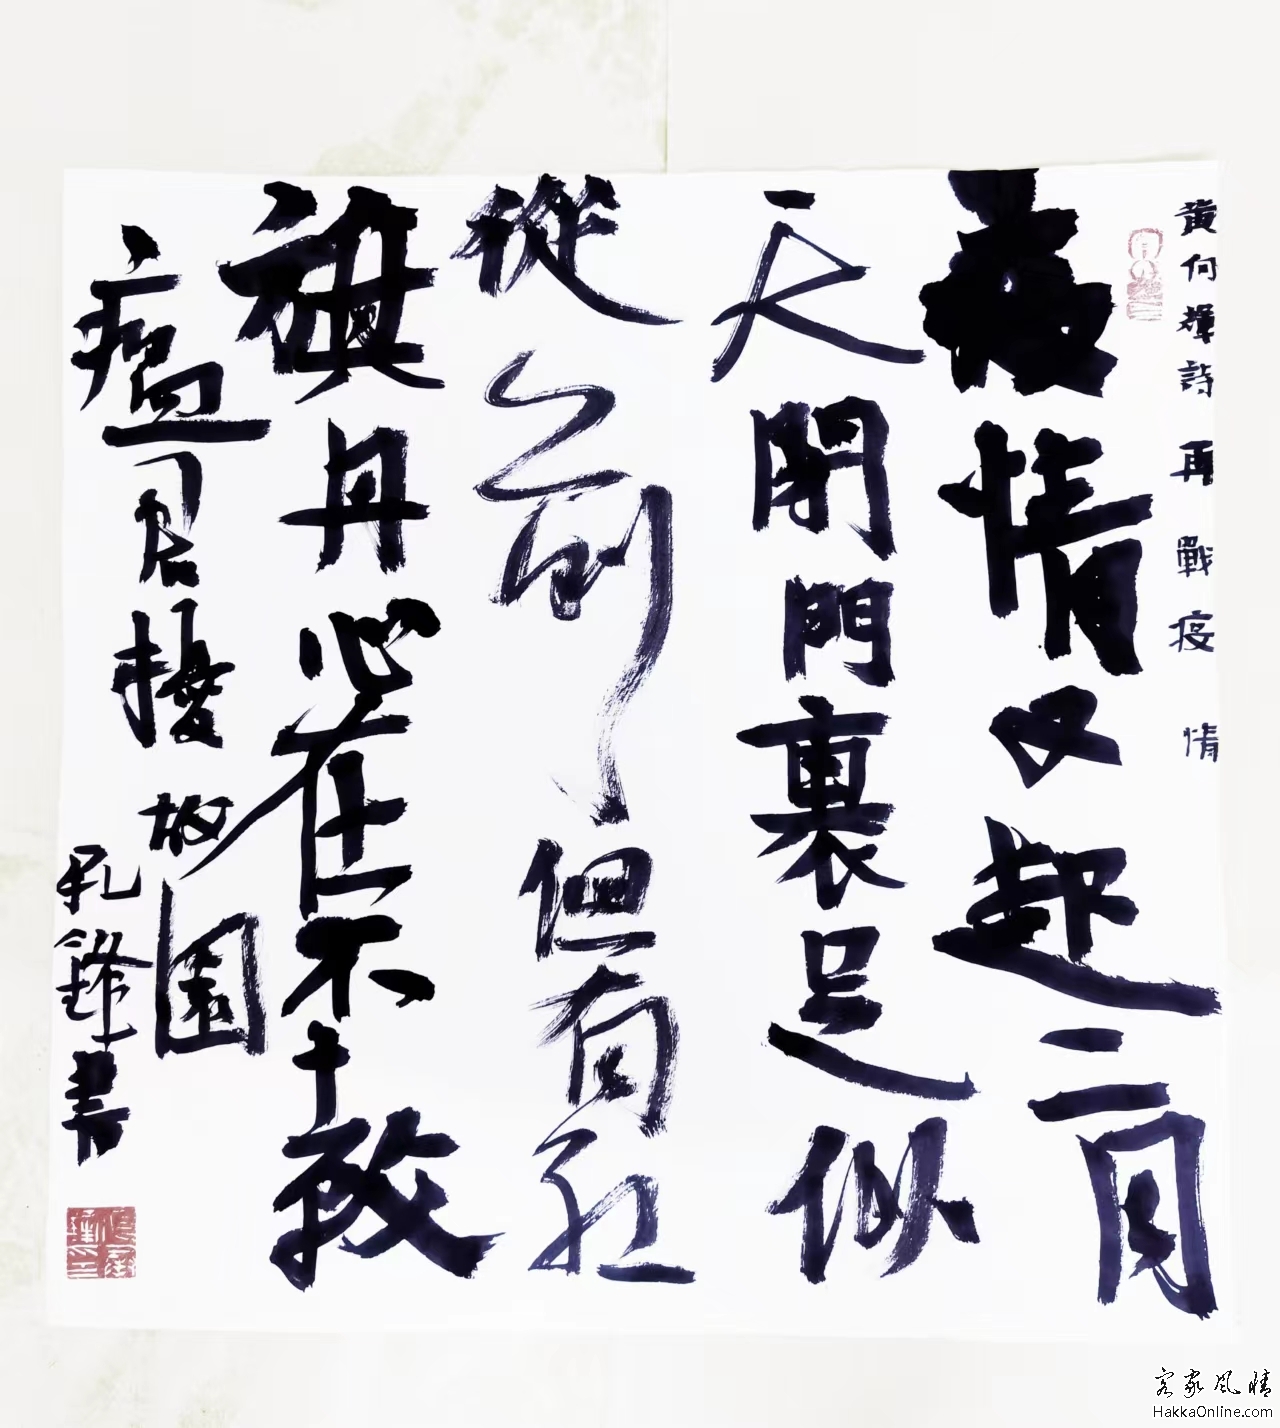 黄何輝詩 再戰疫情
疫情又起二月
天閉門裹足似
從前但有紅
旗丹心在不教
瘟君擾故園
孔鋒書
客家风情
HakkaOnline.com